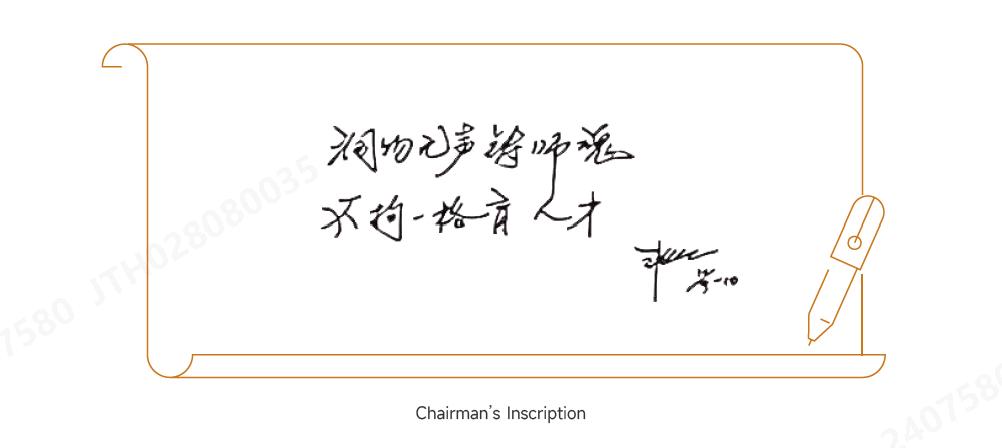 润物无声铸师魂
不拘一格育人才
Chairman's Inscription
JTH028080035
7580
2407580